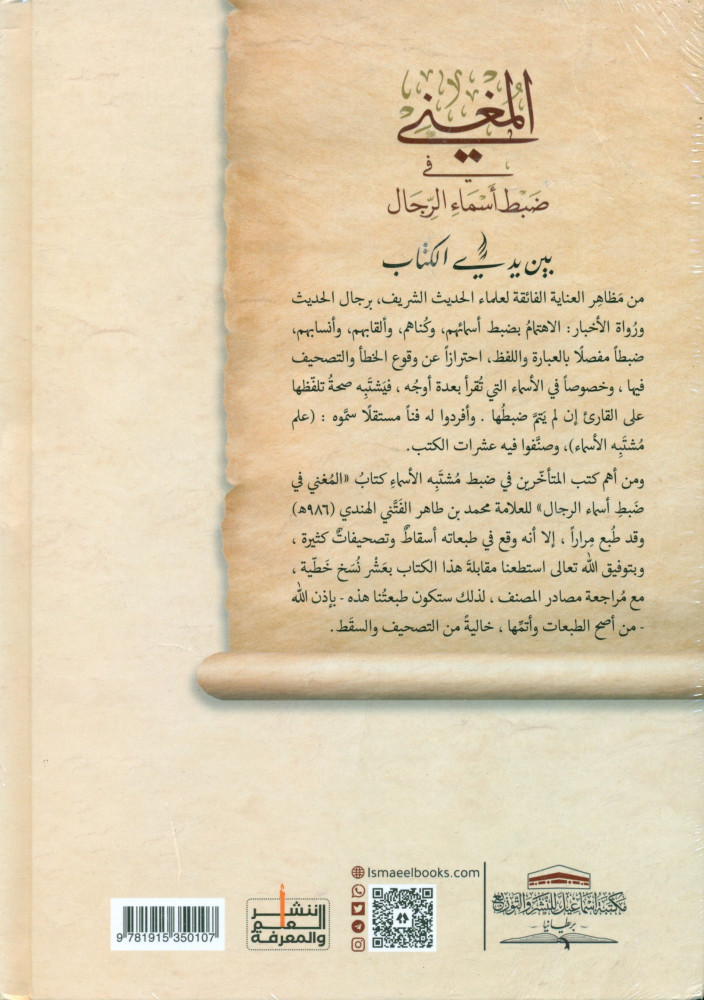 المُغْنِي
في
ضَبْط أَسْمَاءِ الرِّجَال
بين يدي الكتاب
من مَظاهِر العناية الفائقة لعلماء الحديث الشريف، برجال الحديث
ورُواة الأخبار: الاهتمامُ بضبط أسمائهم، وكُناهم، وألقابهم، وأنسابهم،
ضبطاً مفصلًا بالعبارة واللفظ، احترازاً عن وقوع الخطأ والتصحيف
فيها، وخصوصاً في الأسماء التي تُقرأ بعدة أوجُه، فيَشتَبِه صحةُ تلفّظها
على القارئ إن لم يَتمَّ ضبطُها. وأفردوا له فناً مستقلًا سمَّوه: (علم
مُشتَبِه الأسماء)، وصنَّفوا فيه عشرات الكتب.
ومن أهم كتب المتأخّرين في ضبط مُشتَبِه الأسماءِ كتابُ «المُغني في
ضَبطِ أسماء الرجال» للعلامة محمد بن طاهر الفَتَّني الهندي (٩٨٦هـ)
وقد طُبع مِراراً، إلا أنه وقع في طبعاته أسقاطٌ وتصحيفاتٌ كثيرة،
وبتوفيق الله تعالى استطعنا مقابلةَ هذا الكتاب بعَشْر نُسَخ خَطّية،
مع مُراجعة مصادر المصنف، لذلك ستكون طبعتُنا هذه - بإذن الله
- من أصح الطبعات وأتمِّها، خاليةً من التصحيف والسقَط.
Ismaeelbooks.com
مكتبة إسماعيل للنشر والتوزيع
- بريطانيا -
لننشر
العلم
والمعرفة
9 781915 350107